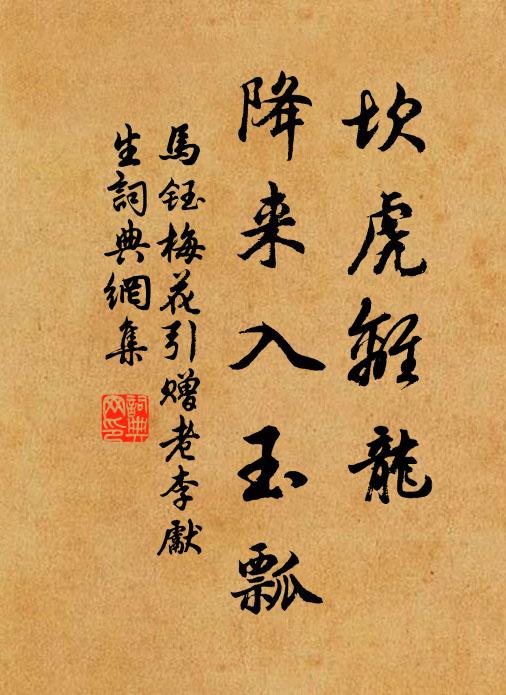 坎虎離龍
降来入玉瓢
馬鈺梅花引贈老李獻
生詞典網集
詞典網印